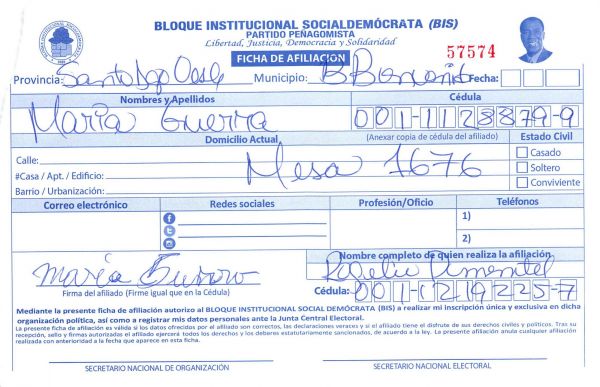 BLOQUE INSTITUCIONAL SOCIALDEMÓCRATA (BIS)
PARTIDO PEÑAGOMISTA
Libertad, Justicia, Democracia y Solidaridad
FICHA DE AFILIACIÓN
57574
Provincia: Santo Dgo Oeste Municipio: Fecha:
Nombres y Apellidos Cédula
Maria Guerra 001-1128879-9
Domicilio Actual (Anexar copia de cédula del afiliado) Estado Civil
Calle: Mesa 1676 Casado
#Casa / Apt. / Edificio: Soltero
Barrio / Urbanización: Conviviente
Correo electrónico Redes sociales Profesión/Oficio Teléfonos
1)
2)
Nombre completo de quien realiza la afiliación
María Rogelio Pimentel
Firma del afiliado (Firme igual que en la Cédula) Cédula: 001-1219225-7
Mediante la presente ficha de afiliación autorizo al BLOQUE INSTITUCIONAL SOCIAL DEMÓCRATA (BIS) a realizar mi inscripción única y exclusiva en dicha
organización política, así como a registrar mis datos personales ante la Junta Central Electoral.
La presente ficha de afiliación es válida si los datos ofrecidos por el afiliado son correctos, las declaraciones veraces y si el afiliado tiene el disfrute de sus derechos civiles y políticos. Tras su
recepción, sello y firmas autorizadas el afiliado ejercerá todos los derechos y los deberes estatutariamente sancionados, de acuerdo a la ley. La presente afiliación anula cualquier afiliación
realizada con anterioridad a la fecha que aparece en esta ficha.
SECRETARIO NACIONAL DE ORGANIZACIÓN SECRETARIO NACIONAL ELECTORAL